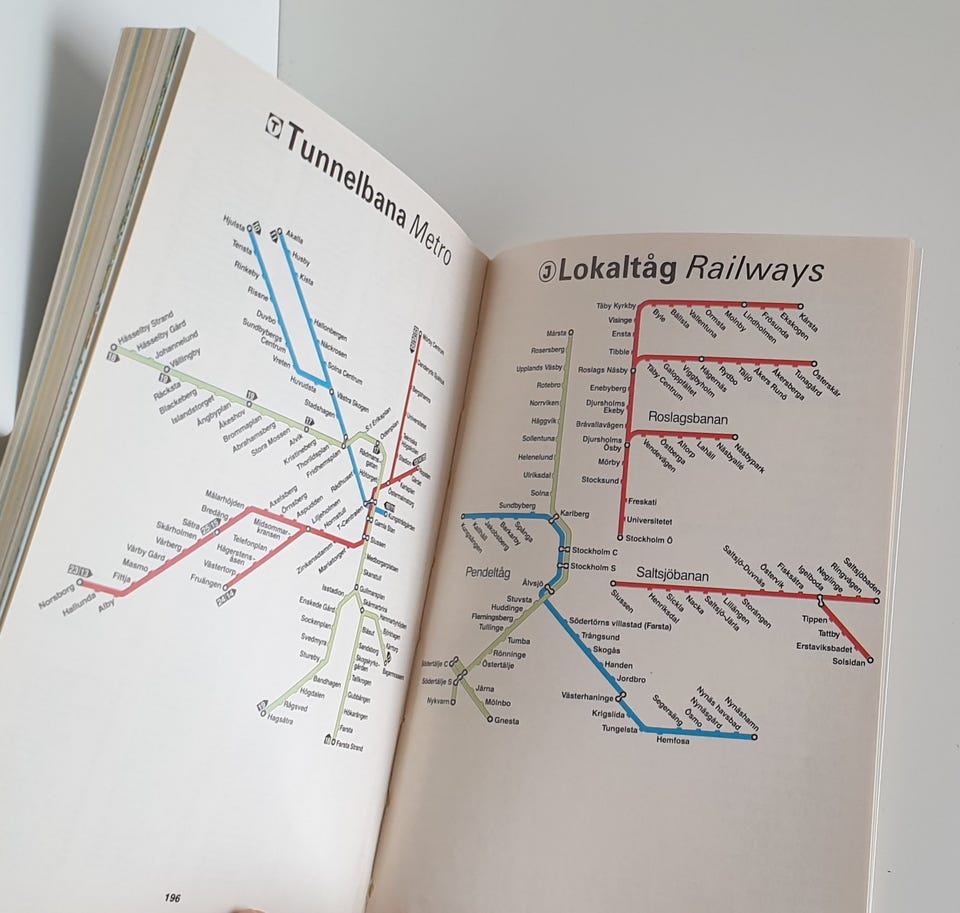 T Tunnelbana Metro
Hjulsta
Akalla
Tensta
Husby
Rinkeby
Kista
Rissne
Hallonbergen
Duvbo
Näckrosen
Sundbybergs
Centrum
Solna Centrum
Vreten
Huvudsta
Västra Skogen
Stadshagen
Hässelby Strand
Hässelby Gård
Johannelund
Vällingby
Råcksta
Blackeberg
Islandstorget
Ängbyplan
Åkeshov
Brommaplan
Abrahamsberg
Stora Mossen
Alvik
Kristineberg
Thorildsplan
Fridhemsplan
S:t Eriksplan
Odenplan
Rådmans-
gatan
Hötorget
Rådhuset
T-Centralen
Universitetet
Tekniska
Högskolan
Stadion
Karlaplan
Östermalmstorg
Kungsträdgården
Gamla Stan
Slussen
Medborgarplatsen
Skanstull
Gullmarsplan
Skärmarbrink
Mälarhöjden
Bredäng
Sätra
Skärholmen
Vårberg
Vårby Gård
Masmo
Fittja
Alby
Hallunda
Norsborg
Axelsberg
Örnsberg
Aspudden
Liljeholmen
Hornstull
Zinkensdamm
Mariatorget
Midsommar-
kransen
Telefonplan
Hägerstens-
åsen
Västertorp
Fruängen
Enskede Gård
Sockenplan
Svedmyra
Stureby
Bandhagen
Högdalen
Rågsved
Hagsätra
Hammarbyhöjden
Björkhagen
Kärrtorp
Bagarmossen
Blåsut
Sandsborg
Skogskyrko-
gården
Tallkrogen
Gubbängen
Hökarängen
Farsta
Farsta Strand
196
J Lokaltåg Railways
Märsta
Rosersberg
Upplands Väsby
Rotebro
Norrviken
Häggvik
Sollentuna
Helenelund
Ulriksdal
Solna
Karlberg
Sundbyberg
Spånga
Barkarby
Jakobsberg
Kallhäll
Kungsängen
Stockholm C
Stockholm S
Pendeltåg
Älvsjö
Stuvsta
Huddinge
Flemingsberg
Tullinge
Tumba
Rönninge
Östertälje
Södertälje C
Södertälje S
Nykvarn
Järna
Mölnbo
Gnesta
Södertörns villastad (Farsta)
Trångsund
Skogås
Handen
Jordbro
Västerhaninge
Krigslida
Tungelsta
Hemfosa
Segersäng
Ösmo
Nynäsgård
Nynäs havsbad
Nynäshamn
Täby Kyrkby
Visinge
Ensta
Tibble
Roslags Näsby
Enebyberg
Djursholms
Ekeby
Bråvallavägen
Djursholms
Ösby
Mörby
Stocksund
Freskati
Universitetet
Stockholm Ö
Byle
Bällsta
Vallentuna
Ormsta
Molnby
Lindholmen
Frösunda
Ekskogen
Kårsta
Täby Centrum
Galoppfältet
Viggbyholm
Hägernäs
Rydbo
Täljö
Åkers Runö
Åkersberga
Tunagård
Österskär
Roslagsbanan
Vendevägen
Östberga
Altorp
Lahäll
Näsbyallé
Näsbypark
Saltsjöbanan
Slussen
Henriksdal
Sickla
Nacka
Saltsjö-Järla
Lillängen
Storängen
Saltsjö-Duvnäs
Östervik
Fisksätra
Igelboda
Neglinge
Ringvägen
Saltsjöbaden
Tippen
Tattby
Erstaviksbadet
Solsidan